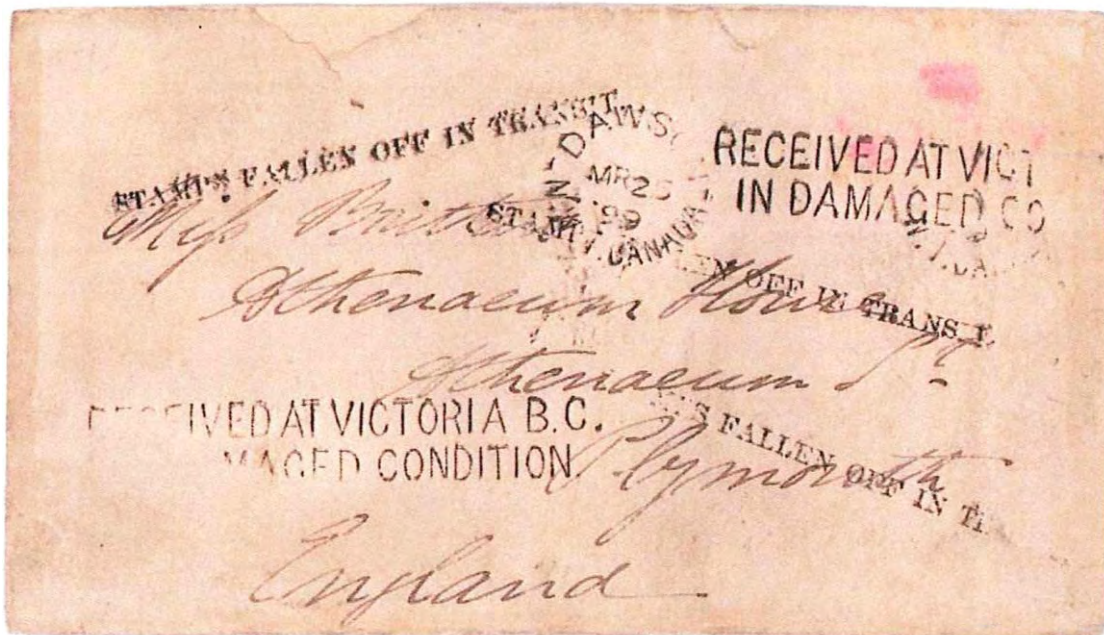 STAMPS FALLEN OFF IN TRANSIT
DAWSO
MR 25
99
N.W.T. CANADA
RECEIVED AT VICT
IN DAMAGED CO
STAMP
LEN OFF IN TRANSIT
Miss
Athenaeum House
Athenaeum St.
RECEIVED AT VICTORIA B.C.
MAGED CONDITION
S FALLEN OFF IN T
Plymouth
England